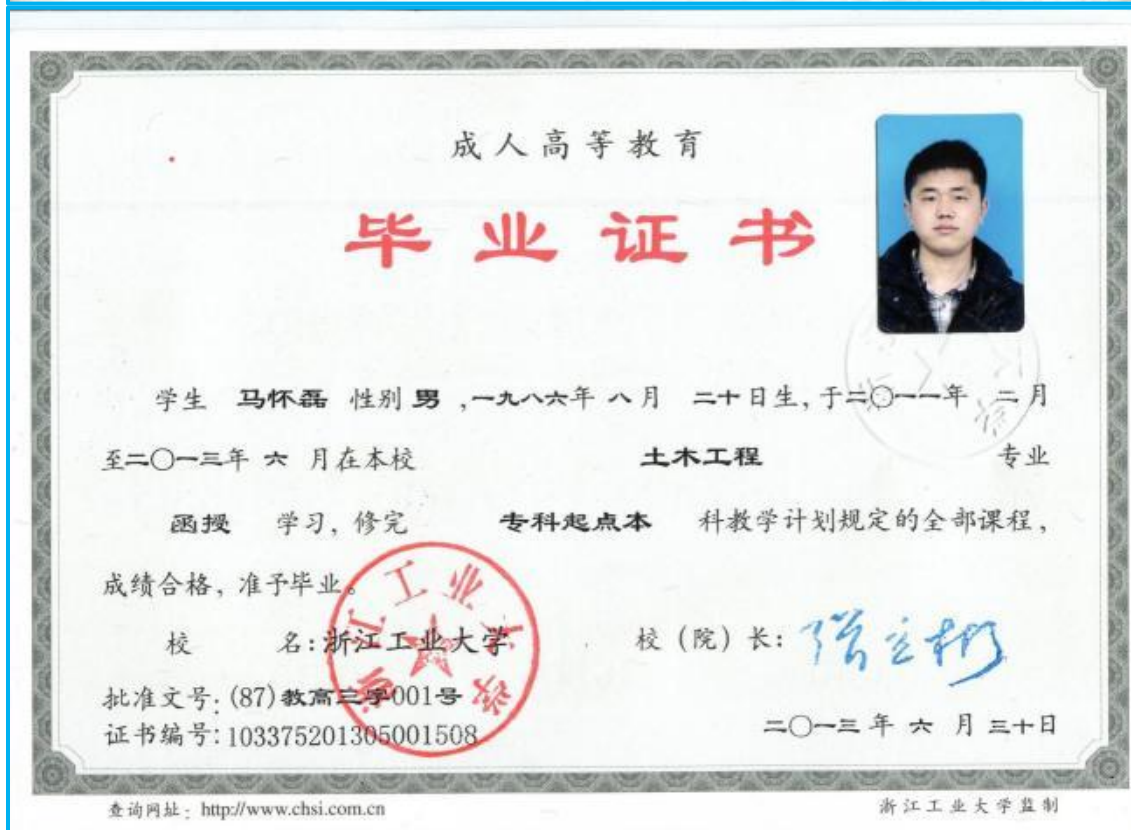 成人高等教育
毕业证书
学生 马怀磊 性别 男 ,一九八六年 八月 二十日生,于二〇一一年 二月
至二〇一三年 六 月在本校 土木工程 专业
函授 学习,修完 专科起点本 科教学计划规定的全部课程,
成绩合格,准予毕业。
浙江工业大学
校 名:浙江工业大学 校(院)长:
批准文号:(87)教高三字001号
证书编号:103375201305001508
二〇一三 年 六 月 三十日
查询网址:http://www.chsi.com.cn 浙江工业大学监制